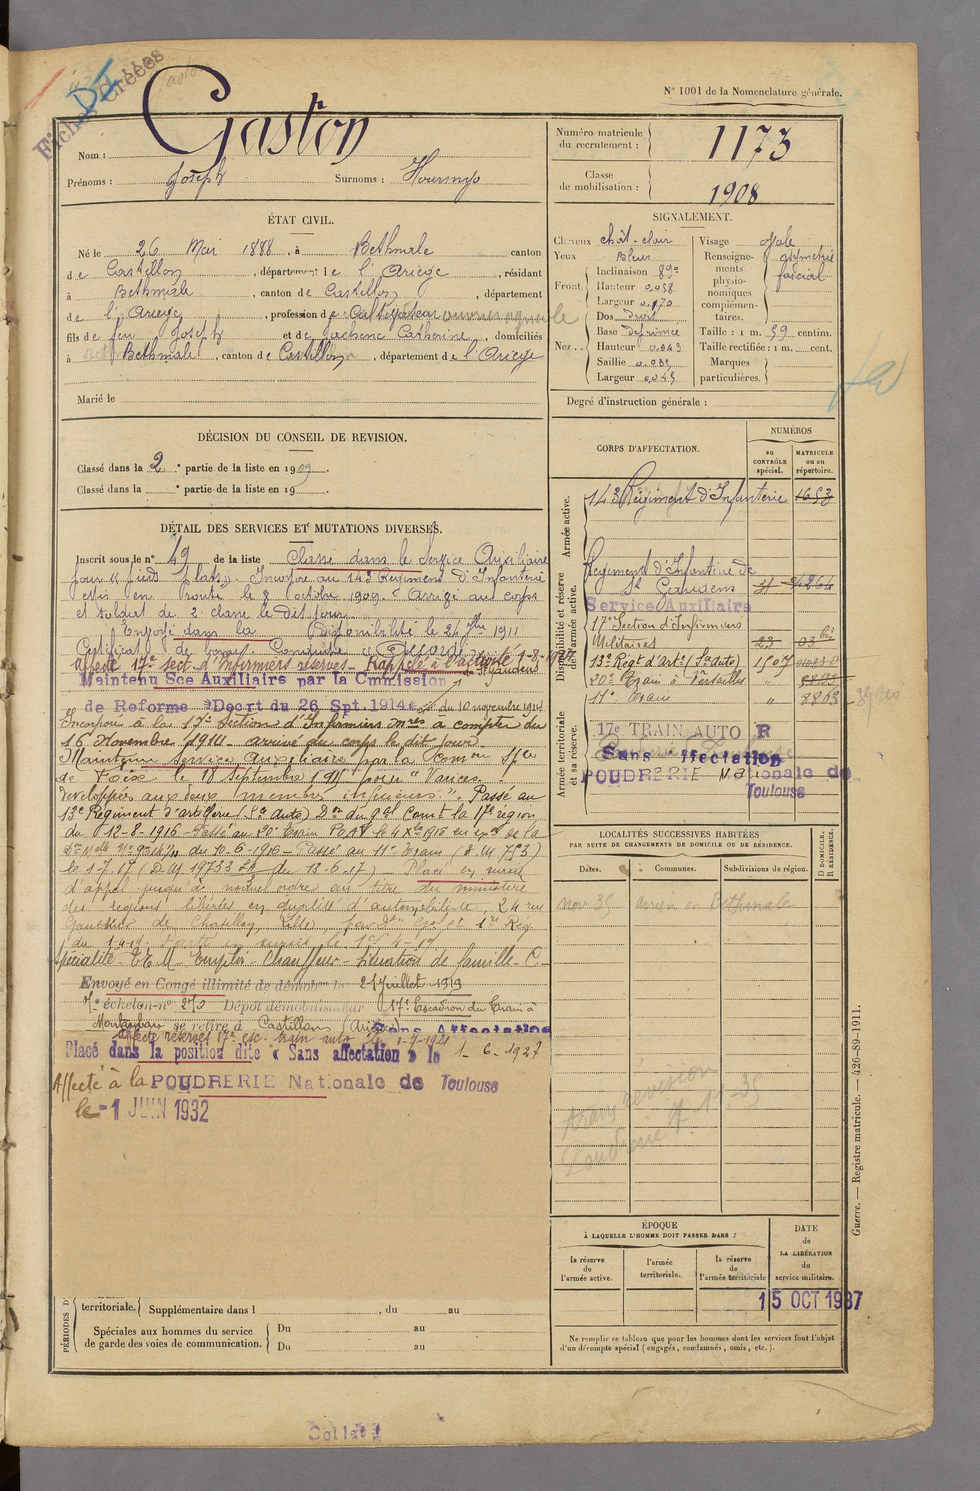 Fiches Créées
N° 1001 de la Nomenclature générale.
Nom : Gaston
Prénoms : Joseph Surnoms :
Numéro matricule du recrutement : 1173
Classe de mobilisation : 1908
ÉTAT CIVIL.
Né le 26 Mai 1888, à Bethmale canton
de Castillon, département de l'Ariège, résidant
à Bethmale, canton de Castillon, département
de l'Ariège, profession de Cultivateur
fils de feu Joseph et de Catherine, domiciliés
à Bethmale, canton de Castillon, département de l'Ariège
Marié le
SIGNALEMENT.
Cheveux chât-clair
Yeux Bleus
Front. Inclinaison
Hauteur 0,058
Largeur
Nez. Dos droit
Base
Hauteur 0.043
Saillie 0.035
Largeur 0,045
Visage ovale
Renseignements physionomiques complémentaires. asymétrie
Taille : 1 m. 59 centim.
Taille rectifiée : 1 m. cent.
Marques particulières.
Degré d'instruction générale :
DÉCISION DU CONSEIL DE REVISION.
Classé dans la 2e partie de la liste en 1909
Classé dans la e partie de la liste en 19
CORPS D'AFFECTATION.
NUMÉROS
au CONTRÔLE spécial.
MATRICULE ou au répertoire.
Armée active.
143 Régiment d'Infanterie 1653
Disponibilité et réserve de l'armée active.
Régiment d'Infanterie de
St Gaudens
Service Auxiliaire
17e Section d'Infirmiers
Militaires 23
13e Régt d'Artie (Sce Auto) 1507
20e Train à Versailles
11e Train 8803
Armée territoriale et sa réserve.
17e TRAIN AUTO R
Sans affectation
POUDRERIE Nationale de
Toulouse
DÉTAIL DES SERVICES ET MUTATIONS DIVERSES.
Inscrit sous le n° 49 de la liste Classé dans le service Auxiliaire
pour « pieds plats ». Incorporé au 143e Régiment d'Infanterie
et mis en route le 8 octobre 1909. Arrivé au corps
et soldat de 2e classe le dit jour.
Envoyé dans la Disponibilité le 24 7bre 1911
Certificat de bonne Conduite « Accordé »
Affecté 17e sect. d'infirmiers réserves - Rappelé à l'activité
Maintenu Sce Auxiliaire par la Cmmission
de Reforme Decrt du 26 Spt. 1914 St Gaudens du 10 novembre 1914
Incorporé à la 17e Section d'Infirmiers mres à compter du
16 Novembre 1914 arrivé au corps le dit jour
Maintenu service auxiliaire par la Comon Spéle
de Foix le 18 Septembre 1915 pour "Varices
développées aux deux membres inférieurs". Passé au
13e Régiment d'artillerie (Sce Auto) Don du Gal Comt la 17e région
du 12-8-1916 - Passé au 20e Train
du 10-6-1916 - Passé au 11e Train
le 1-7-17 (D.M 19733 du 13-6-17) - Placé en sursis
d'appel jusqu'à nouvel ordre au titre du ministère
des régions libérées en qualité d'automobiliste, 24 rue
Gauthier de Chatillon, Lille, 1re Rég.
du 1-4-19.
Spécialité T E M - Emploi - Chauffeur - Situation de famille - C -
Envoyé en Congé illimité de démobon le 25 Juillet 1919
échelon n° Dépôt démobilisateur 17e Escadron du Train à
Montauban se retire à Castillon
Sans Affectation
affecté réserves 17e esc. train auto
Placé dans la position dite « Sans affectation » le 1-6-1927
Affecté à la POUDRERIE Nationale de Toulouse
le -1 JUIN 1932
LOCALITÉS SUCCESSIVES HABITÉES
PAR SUITE DE CHANGEMENTS DE DOMICILE OU DE RÉSIDENCE.
Dates. Communes. Subdivisions de région. D DOMICILE. R RÉSIDENCE.
nov 35 Bethmale
ÉPOQUE
À LAQUELLE L'HOMME DOIT PASSER DANS :
la réserve de l'armée active.
l'armée territoriale.
la réserve de l'armée territoriale
DATE de LA LIBÉRATION du service militaire.
15 OCT 1937
PÉRIODES D
territoriale. Supplémentaire dans l , du au
Spéciales aux hommes du service de garde des voies de communication. Du au
Du au
Ne remplir ce tableau que pour les hommes dont les services font l'objet
d'un décompte spécial (engagés, condamnés, omis, etc.).
Guerre. — Registre matricule. — 426-89-1911.